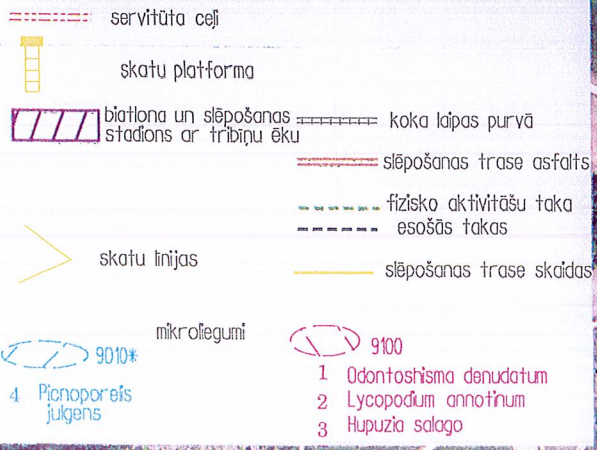 servitūta ceļi
skatu platforma
biatlona un slēpošanas
stadions ar tribīņu ēku
koka laipas purvā
slēpošanas trase asfalts
fizisko aktivitāšu taka
esošās takas
skatu līnijas
slēpošanas trase skaidas
mikroliegumi
9010*
4 Picnoporels
julgens
9100
1 Odontoshisma denudatum
2 Lycopodium annotinum
3 Hupuzia salago